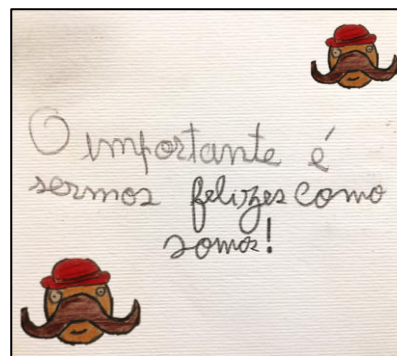 O importante é
sermos felizes como
somos!